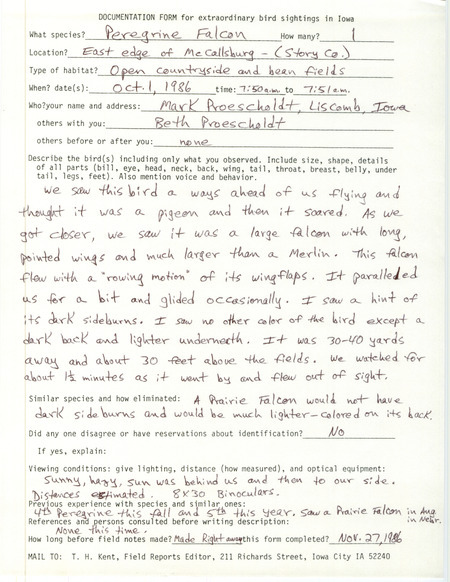 DOCUMENTATION FORM for extraordinary bird sightings in Iowa
What species? Peregrine Falcon How many? 1
Location? East edge of McCallsburg - (Story Co.)
Type of habitat? Open countryside and bean fields
When? date(s): Oct. 1, 1986 time: 7:50 a.m. to 7:51 a.m.
Who?your name and address: Mark Proescholdt, Liscomb, Iowa
others with you: Beth Proescholdt
others before or after you: none
Describe the bird(s) including only what you observed. Include size, shape, details
of all parts (bill, eye, head, neck, back, wing, tail, throat, breast, belly, under
tail, legs, feet). Also mention voice and behavior.
We saw this bird a ways ahead of us flying and
thought it was a pigeon and then it soared. As we
got closer, we saw it was a large falcon with long,
pointed wings and much larger than a Merlin. This falcon
flew with a "rowing motion" of its wingflaps. It paralleded
us for a bit and glided occasionally. I saw a hint of
its dark sideburns. I saw no other color of the bird except a
dark back and lighter underneath. It was 30-40 yards
away and about 30 feet above the fields. We watched for
about 1½ minutes as it went by and flew out of sight.
Similar species and how eliminated: A Prairie Falcon would not have
dark sideburns and would be much lighter-colored on its back.
Did any one disagree or have reservations about identification? No
If yes, explain:
Viewing conditions: give lighting, distance (how measured), and optical equipment:
Sunny, hazy, sun was behind us and then to our side.
Distances estimated. 8X30 Binoculars.
Previous experience with species and similar ones:
4th Peregrine this fall and 5th this year. Saw a Prairie Falcon in Aug. in Nebr.
References and persons consulted before writing description:
None this time.
How long before field notes made? Made Right away this form completed? Nov. 27, 1986
MAIL TO: T. H. Kent, Field Reports Editor, 211 Richards Street, Iowa City IA 52240